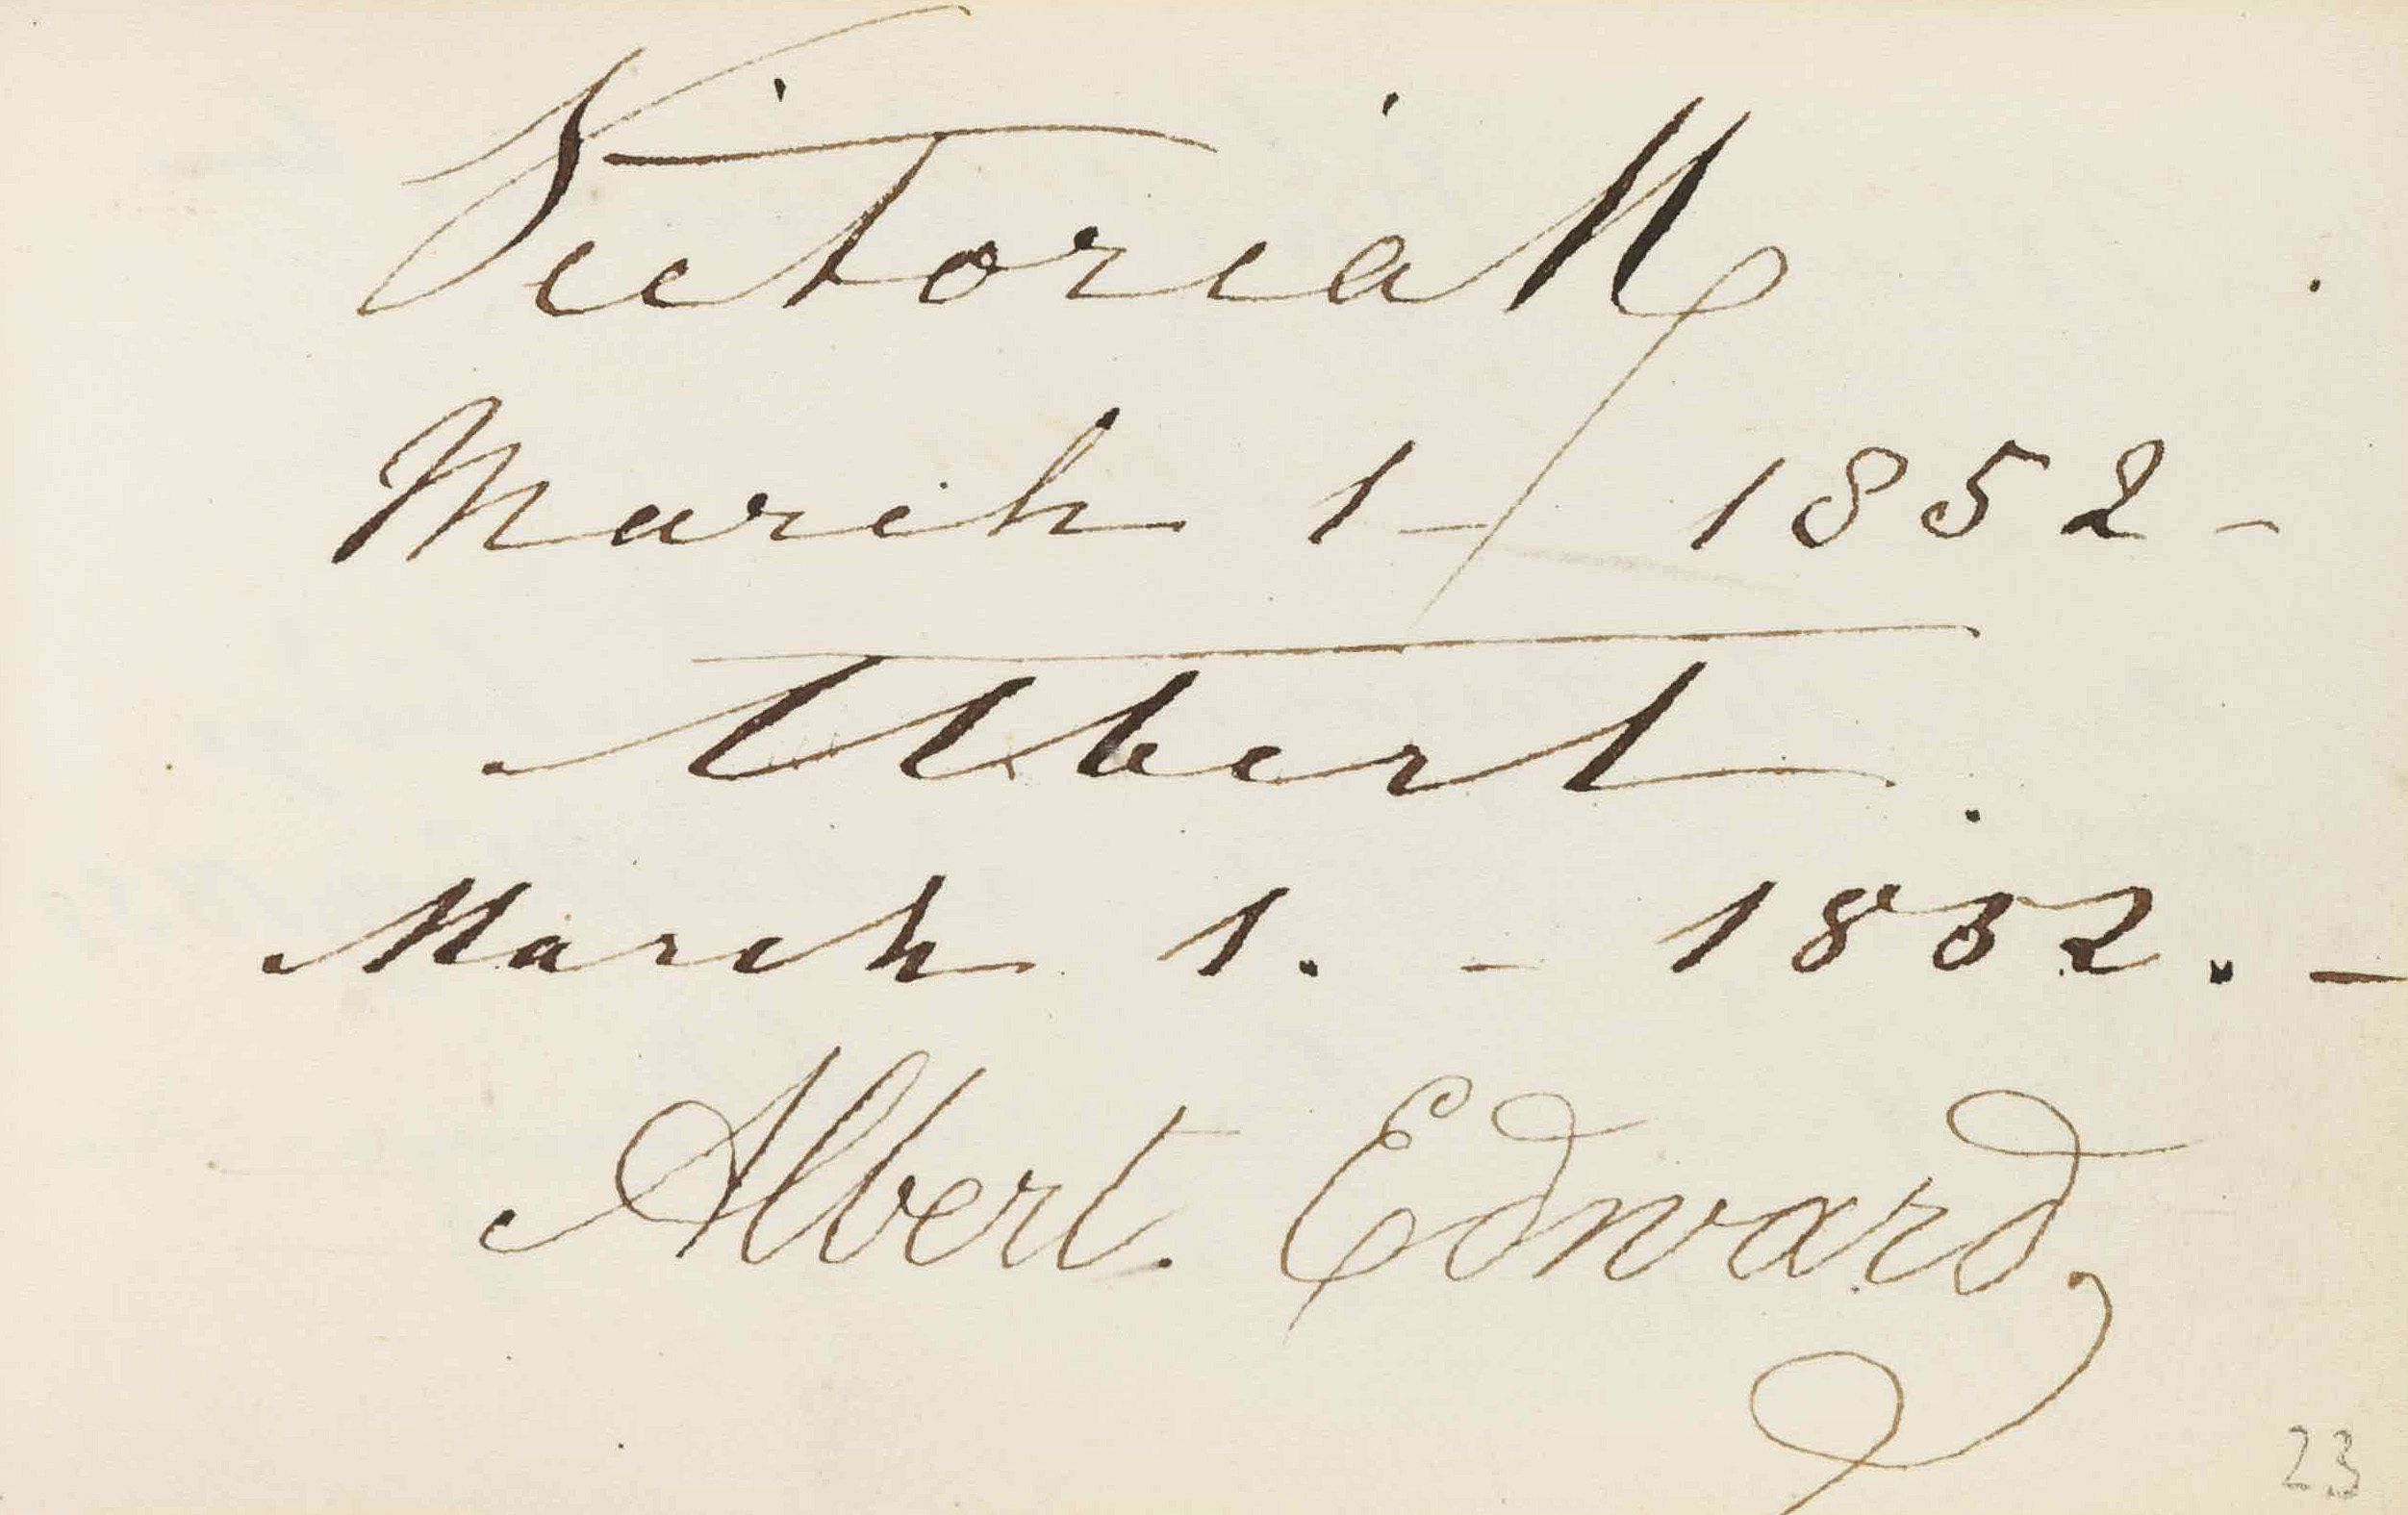 Victoria R
March 1 - 1852 -
Albert.
March 1. - 1852. -
Albert Edward,
23